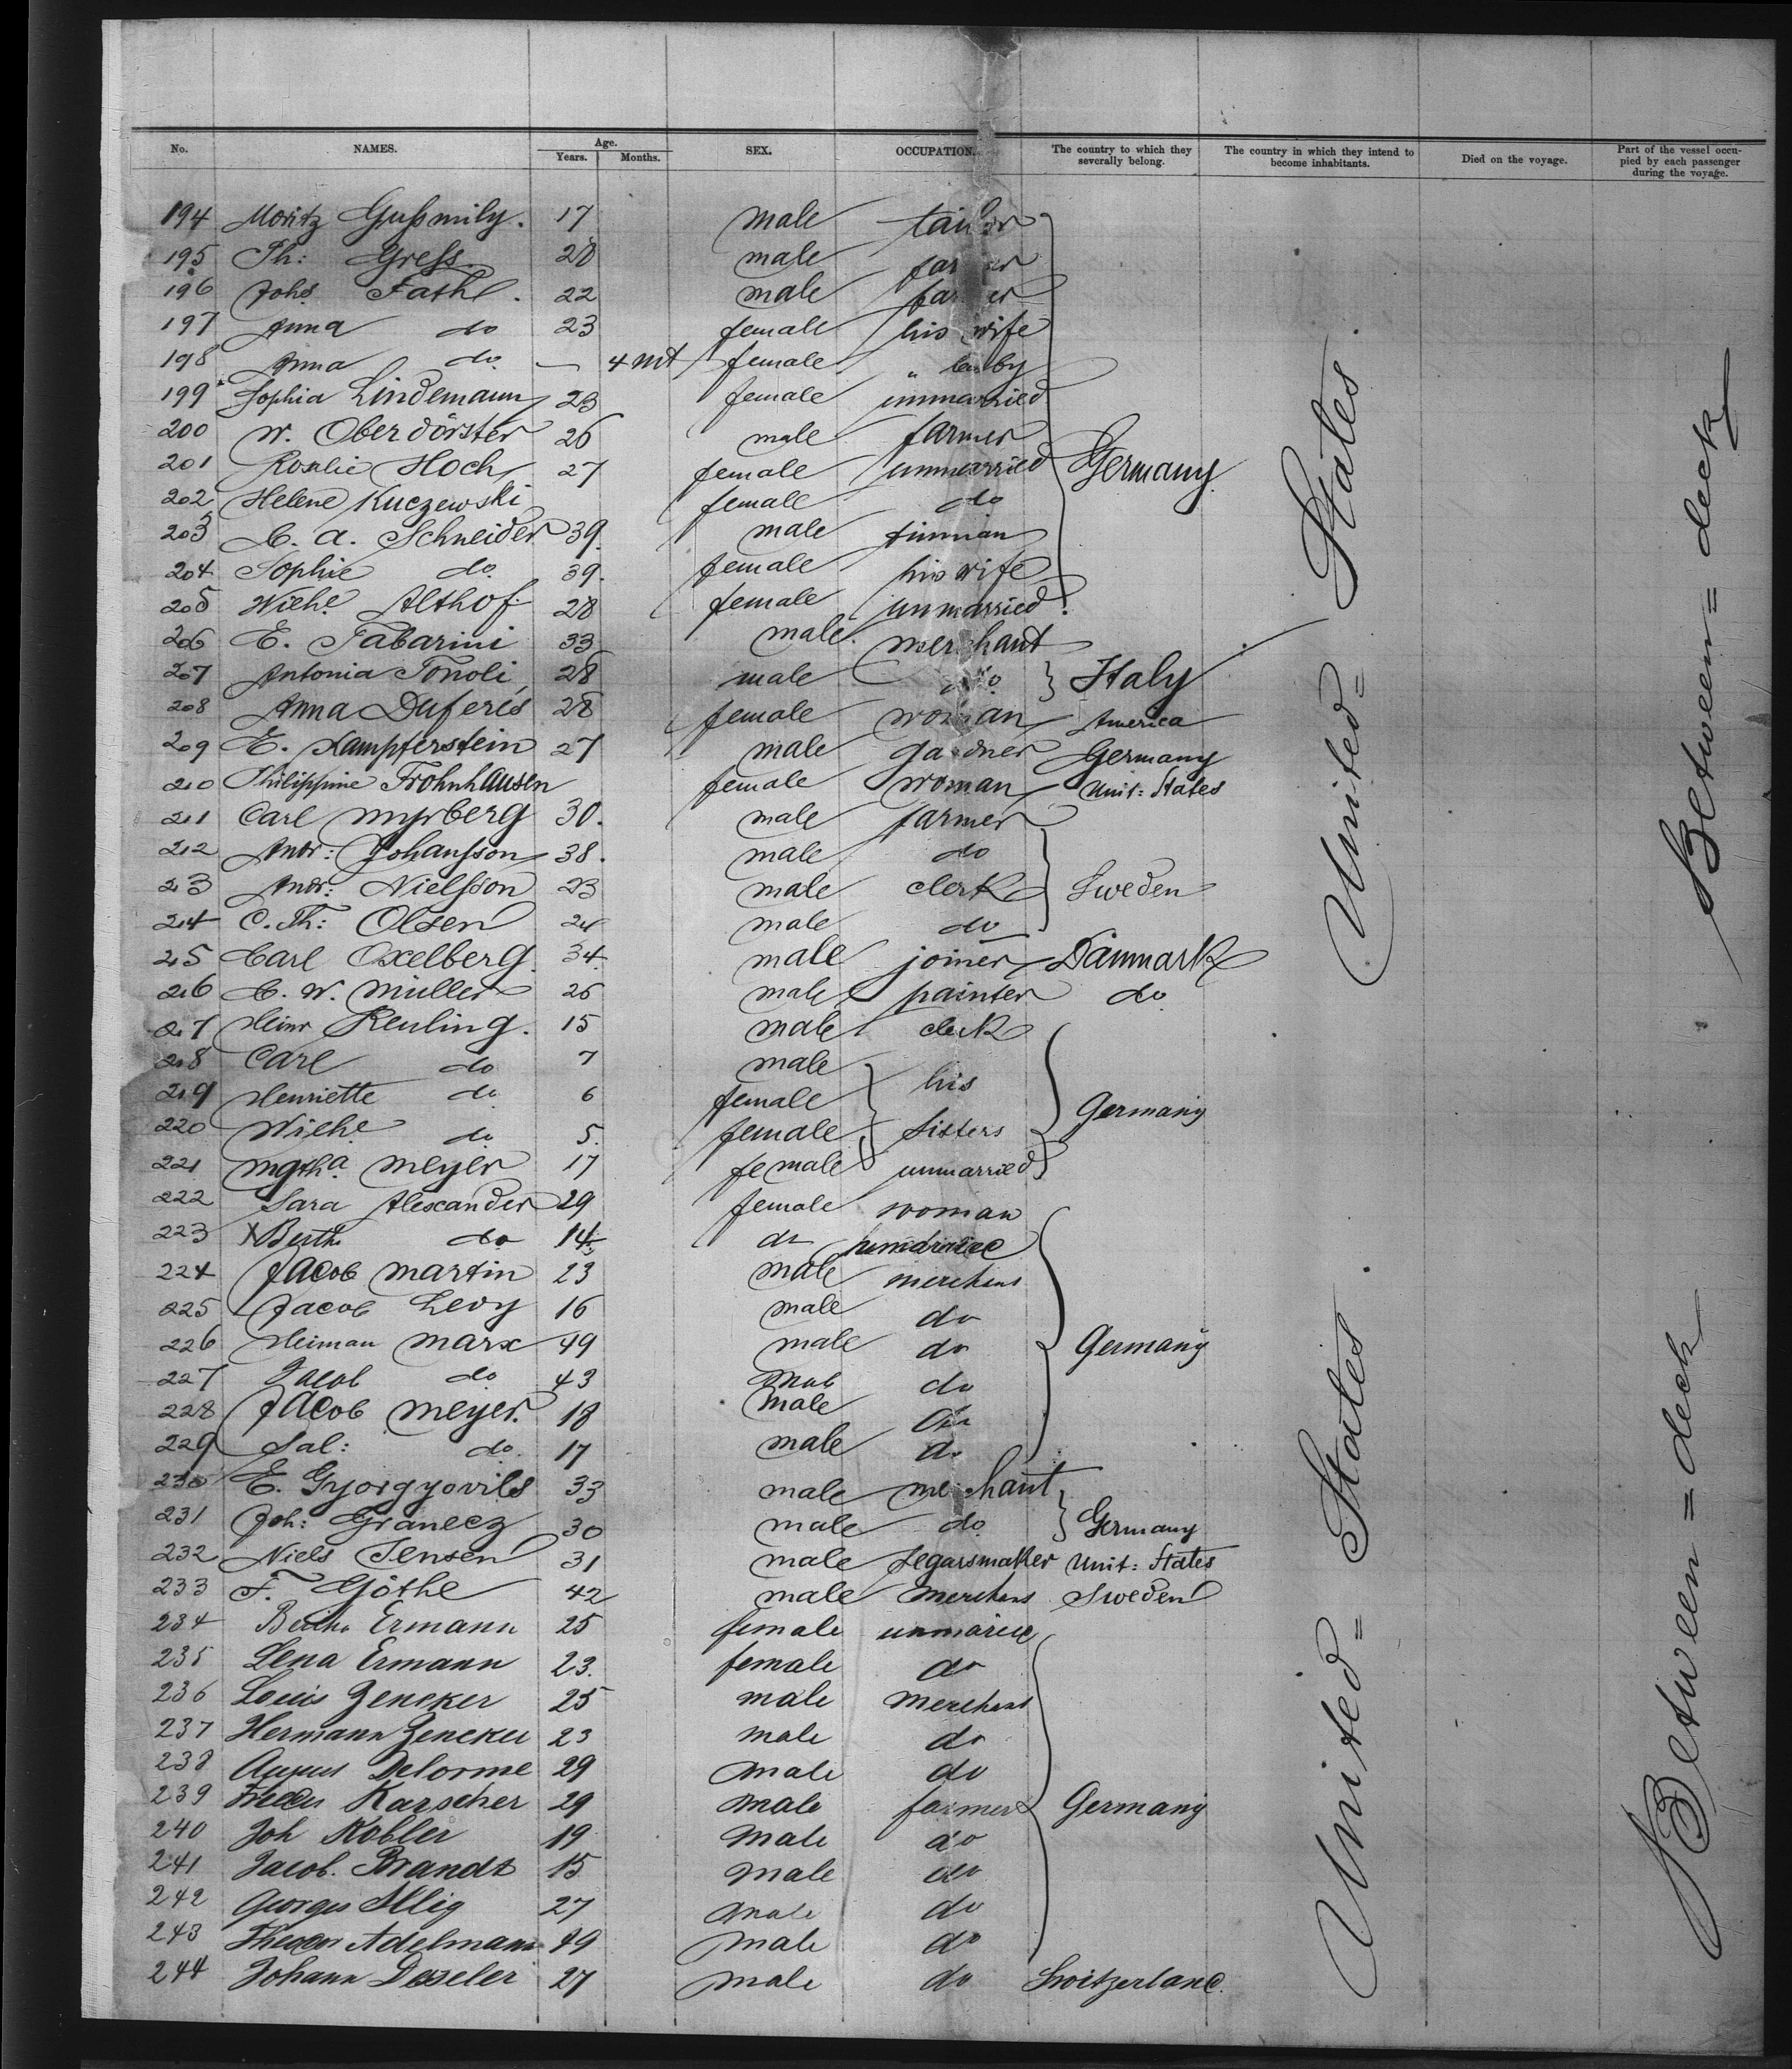 No. NAMES. Age. Years. Months. SEX. OCCUPATION. The country to which they severally belong. The country in which they intend to become inhabitants. Died on the voyage. Part of the vessel occupied by each passenger during the voyage.
194 Moritz Gußmily. 17 male tailor
195 Th: Greß 28 male farmer
196 Johs Fathl. 22 male farmer
197 Anna do 23 female his wife
198 Anna do. — 4 mt female "
199 Sophia Lindemann 23 female unmarried
200 W. Oberdörster 26 male farmer
201 Rosalie Hoch 27 female unmarried Germany
202 Helene Kuczewski female do
203 C. A. Schneider 39. male
204 Sophie do. 39. female his wife
205 Wilhe Althof 28 female unmarried.
206 E. Tabarini 33 male. merchant
207 Antonia Tonoli 28 male do Italy
208 Anna Duferés 28 female woman America
209 E. Kampferstein 27 male gardner Germany
210 Philippine Frohnhausen female woman Unit: States
211 Carl Myrberg 30. male farmer
212 Andr: Johansson 38. male do
213 Andr: Nielsson 23 male clerk Sweden
214 C. Th: Olsen 24 male do
215 Carl Oxelberg. 34. male joiner Danmark
216 C. W. Müller 26 male painter do
217 Heinr Reuling. 15 male clerk
218 Carl do 7 male
219 Henriette do 6 female his
220 Wilhe do. 5. female sisters Germany
221 Mgtha. Meyer 17 female unmarried
222 Sara Alexander 29 female woman
223 x Berth do 14 do
224 Jacob Martin 23 male merchant
225 Jacob Levy 16 male do
226 Heiman Marx 49 male do Germany
227 Jacob do 43 male do
228 Jacob Meyer. 18 male do
229 Sal: do. 17 male do
230 E. Gyorgyovils 33 male merchant
231 Joh: Granecz 30 male do. Germany
232 Niels Jensen 31 male segarsmaker Unit: States
233 F. Göthe 42 male merchant Sweden
234 Bertha Ermann 25 female unmarried
235 Lena Ermann 23. female do
236 Louis Zencker 25 male merchant
237 Hermann Zencker 23 male do
238 August Delorme 29 male do
239 Karscher 29 male farmer Germany
240 Joh Kobler 19 male do
241 Jacob. Brandt 15 male do
242 Georges Illig 27 male do
243 Adelmann 49 male do
244 Johann Desseler 27 male do Switzerland.
United = States.
United = States.
Between = deck
Between = deck